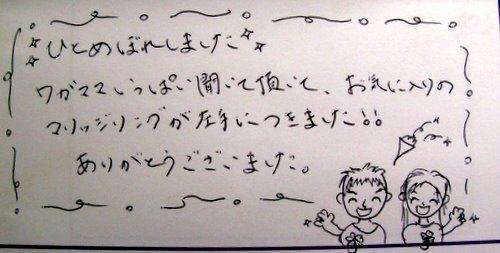 ひとめぼれしました
ワガママいっぱい聞いて頂いて、お気に入りの
マリッジリングが左手につきました!!
ありがとうございました。